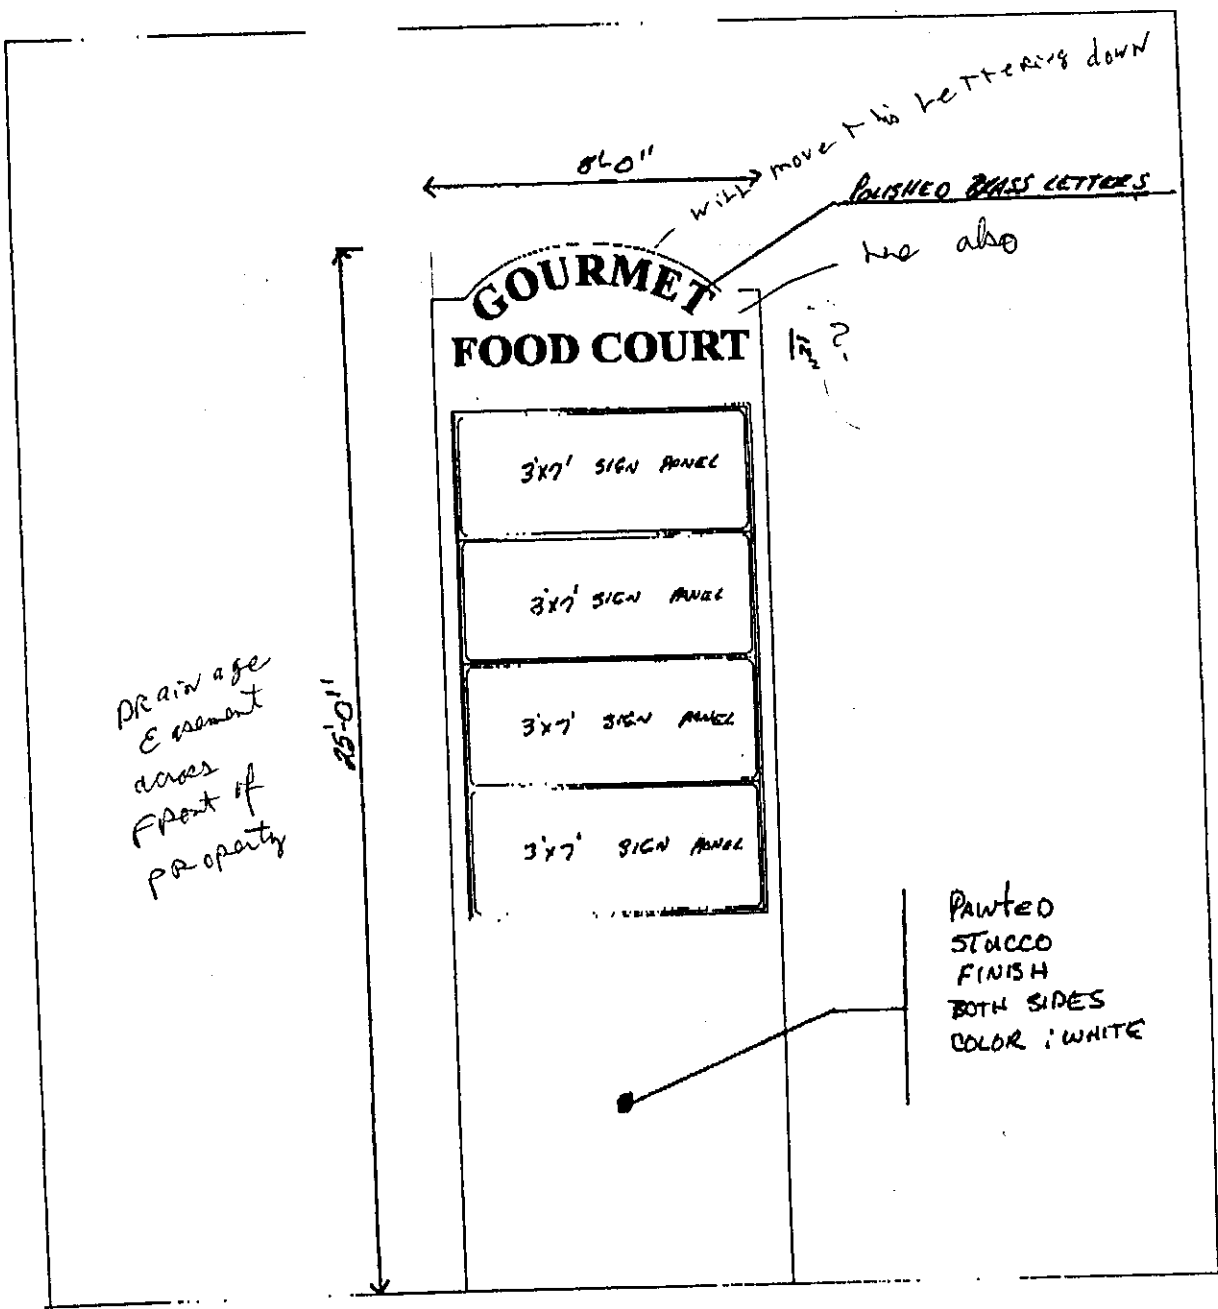 will move this Lettering down
8'-0"
POLISHED BRASS LETTERS
also
GOURMET
FOOD COURT
?
3'x7' SIGN PANEL
3'x7' SIGN PANEL
3'x7' SIGN PANEL
3'x7' SIGN PANEL
25'-0"
DRainage
Easement
across
FRont of
pRoperty
PAINTED
STUCCO
FINISH
BOTH SIDES
COLOR : WHITE